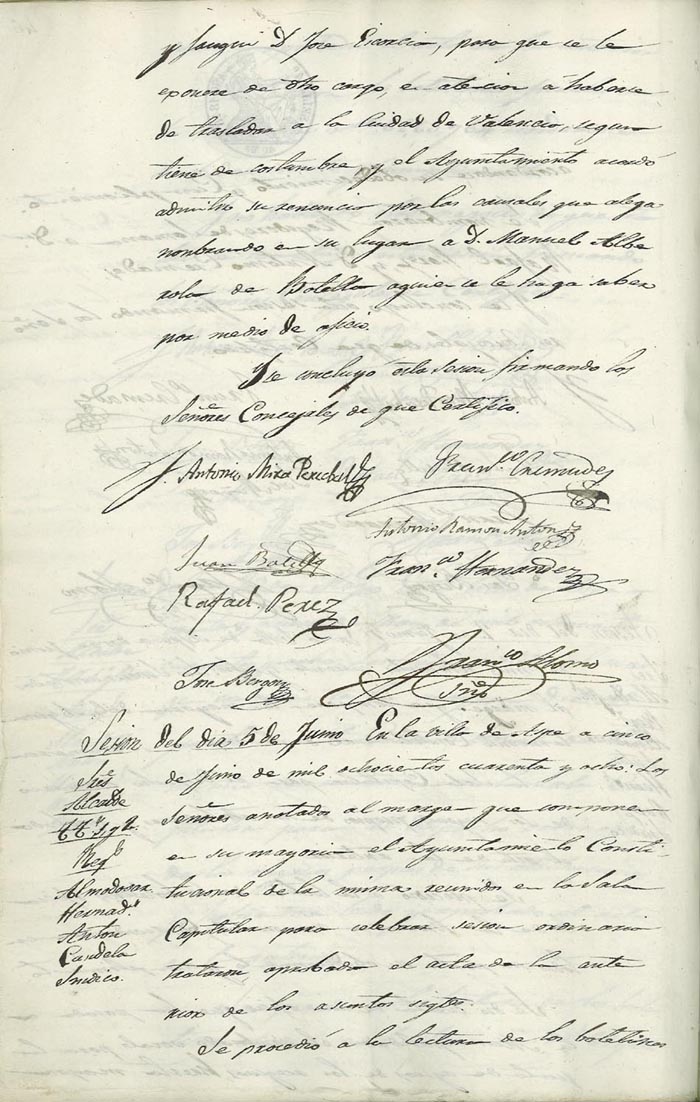 y Jauqui D. Jose Escorcia, para que se le
exonere de dho cargo, en atencion a haberse
de trasladar a la Ciudad de Valencia, segun
tiene de costumbre, y el Ayuntamiento acordó
admitir su renuncia por las causales que alega
nonbrando en su lugar a D. Manuel Albe
rola de Botella aquien se le haga saber
por medio de oficio.
Y se concluyo esta sesion firmando los
Señores Concejales de que Certifico.
J. Antonio Mira Percebal
Franco Cremades
Antonio Ramon Anton
Juan Botella
Franco Hernandez
Rafael Perez
Jose Bergon
Franco Alorno
Srio
Sesion del dia 5 de Junio En la villa de Aspe a cinco
de Junio de mil ochocientos cuarenta y ocho: Los
Señores anotados al marge que componen
en su mayoria el Ayuntamiento Consti-
tucional de la misma reunidos en la Sala
Capitular para celebrar sesion ordinaria
trataron, aprobada el acta de la ante
rior de los asuntos sigtes.
Se procedió a la lectura de los boletines
Sres
Alcalde
TTs 1 y 2
Regs
Almodovar
Hernads
Anton
Candela
Sindico.